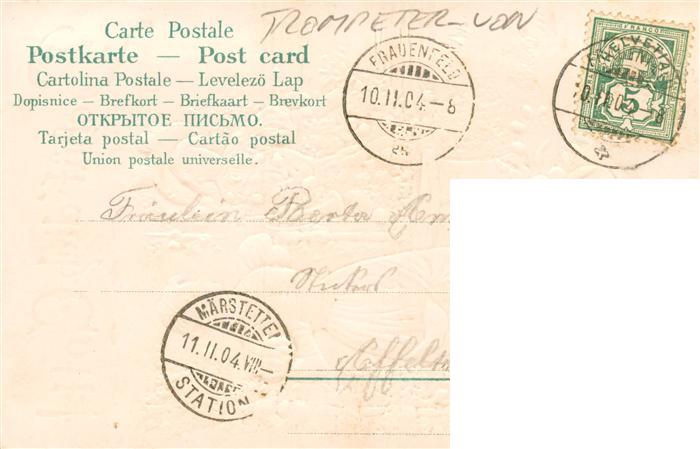 Carte Postale
TROMPETER-VON
Postkarte — Post card
Cartolina Postale — Levelezö Lap
Dopisnice — Brefkort — Briefkaart — Brevkort
ОТКРЫТОЕ ПИСЬМО.
Tarjeta postal — Cartão postal
Union postale universelle.
FRAUENFELD
10.II.04–8
FRANCO
HELVETIA
5
Fräulein Berta
MÄRSTETTEN
11.II.04.VIII–
STATION